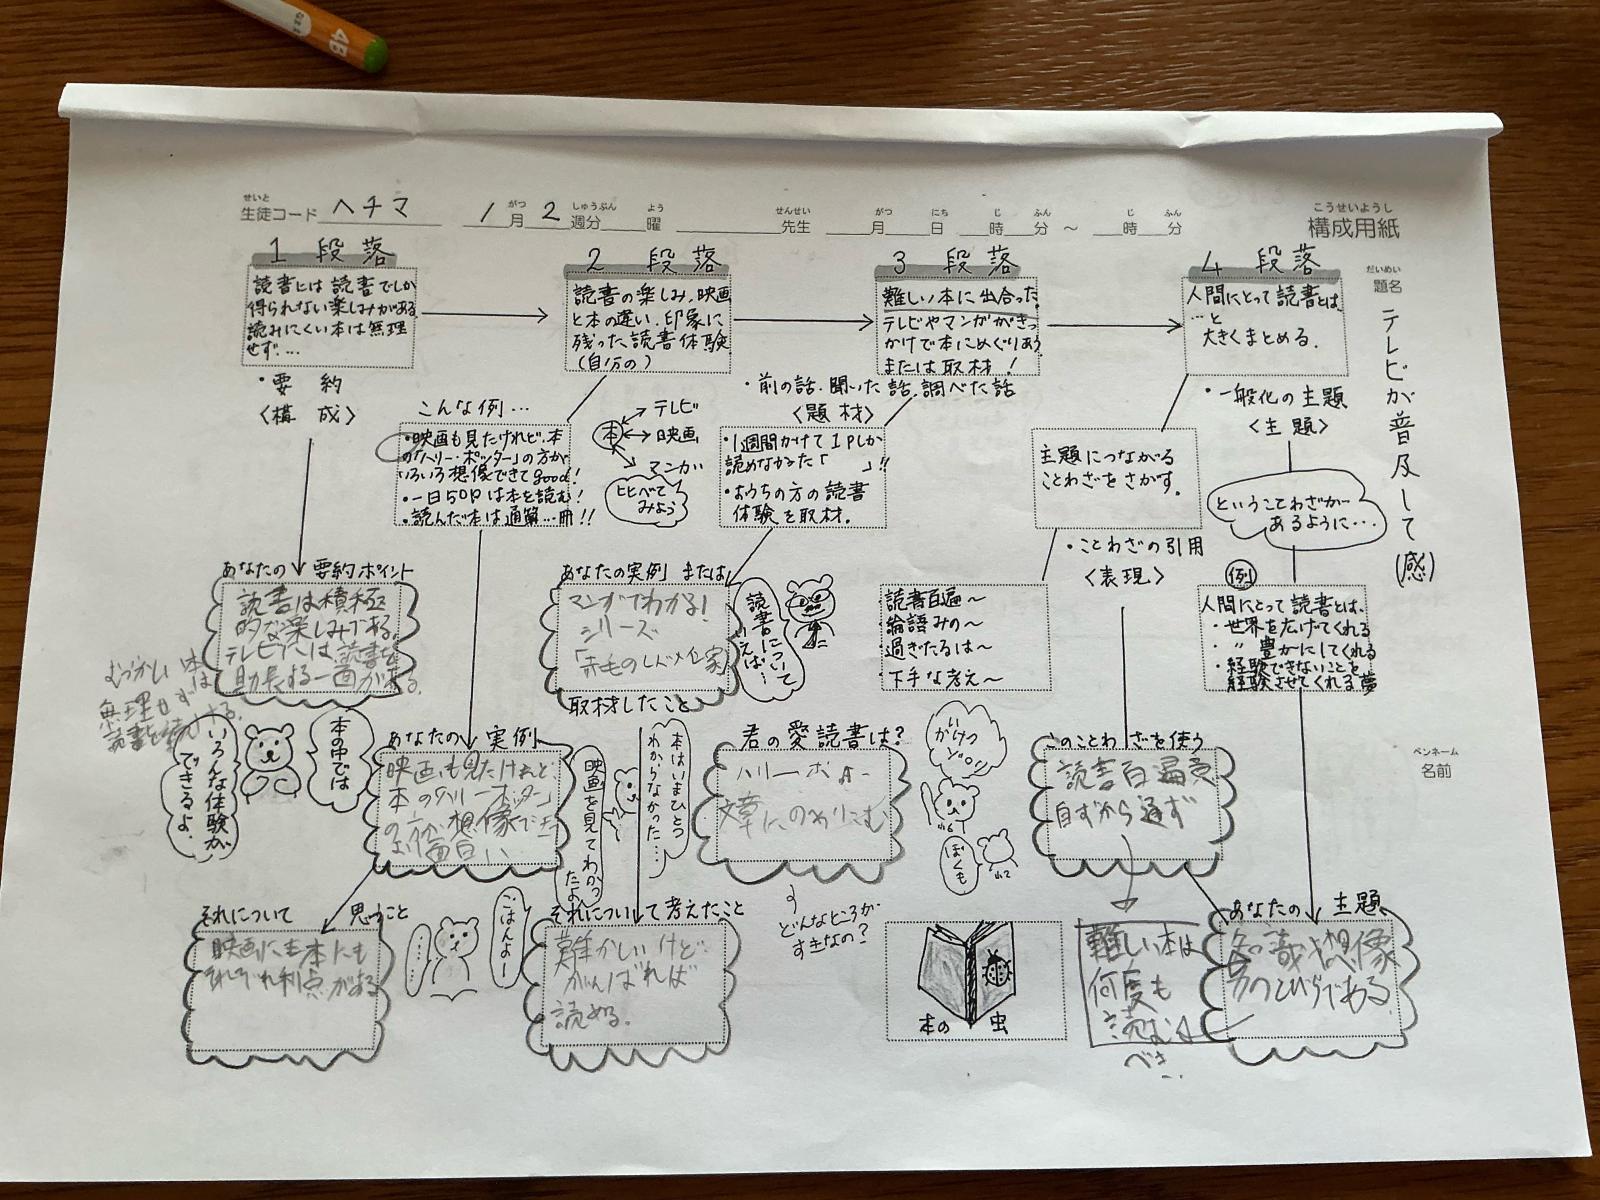 4B
せいと
生徒コード ヘチマ
がつ しゅうぶん よう せんせい がつ にち じ ふん じ ふん
1月2週分 曜 先生 月 日 時 分 〜 時 分
こうせいようし
構成用紙
だいめい
題名
テレビが普及して(感)
ペンネーム
名前
1 段落
読書には読書でしか
得られない楽しみがある。
読みにくい本は無理
せず…
・要約
〈構成〉
2 段落
読書の楽しみ、映画
と本の違い、印象に
残った読書体験
(自分の)
3 段落
難しい本に出合った。
テレビやマンガがきっ
かけで本にめぐりあう
または取材!
・前の話、聞いた話、調べた話
〈題材〉
4 段落
人間にとって読書とは
…と
大きくまとめる。
・一般化の主題
〈主題〉
こんな例…
・映画も見たけれど、本
の「ハリー・ポッター」の方が
いろいろ想像できてgood!
・一日50Pは本を読む!
・読んだ本は通算…冊!!
本
テレビ
映画
マンガ
比べて
みよう
・1週間かけて1Pしか
読めなかった「 」!!
・おうちの方の読書
体験を取材。
主題につながる
ことわざをさがす。
・ことわざの引用
〈表現〉
ということわざが
あるように…
あなたの要約ポイント
読書は積極
的な楽しみである。
テレビには、読書を
助長する一面がある。
むづかしい本は
無理せず
読書を
本の中では
いろんな体験が
できるよ。
あなたの実例 または
マンガでわかる!
シリーズ
「赤毛の
取材したこと
読書について
いえば…
読書百遍〜
論語みの〜
過ぎたるは〜
下手な考え〜
例
人間にとって読書とは、
・世界を広げてくれる
・〃 豊かにしてくれる
・経験できないことを
経験させてくれる夢
あなたの 実例
映画も見たけれど
本の「ハリーポッター」
の方が想像でき
面白い
本はいまひとつ
わからなかった…
映画を見てわかっ
たよ
君の愛読書は?
ハリーポッター
文章にのめりこむ
どんなところが
すきなの?
いがけつ
ゾ。!!
ぼくも
このことわざを使う
読書百遍意
自ずから通ず
難しい本は
何度も
読む
べき
それについて 思うこと
映画にも本にも
それぞれ利点がある
ごはんよー
……
それについて考えたこと
難かしいけど
がんばれば
読める。
本の 虫
あなたの 主題
知識や想像
力のとびらである